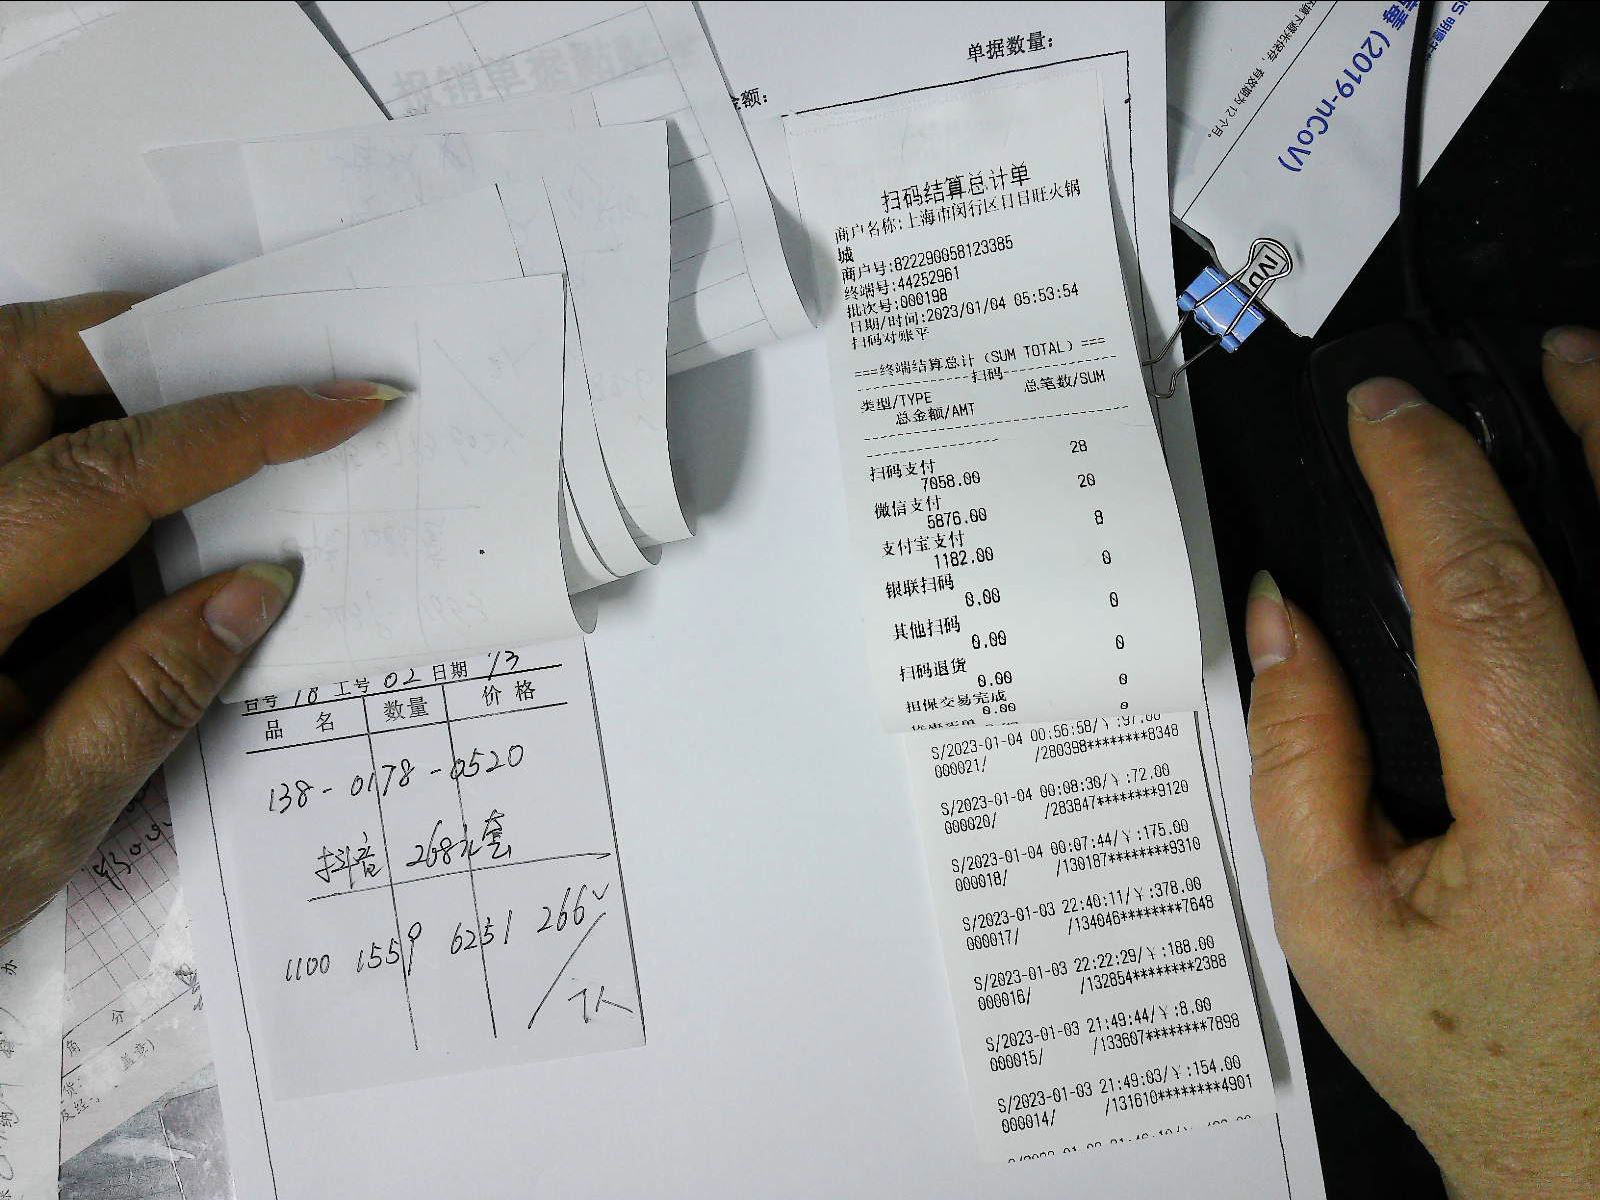 单据数量：
金额：
报销单
(2019-nCoV)
有效期为12个月。
扫码结算总计单
商户名称:上海市闵行区日日旺火锅
城
商户号:822290058123385
终端号:44252961
批次号:000198
日期/时间:2023/01/04 05:53:54
扫码对账平
===终端结算总计（SUM TOTAL）===
扫码
类型/TYPE 总笔数/SUM
总金额/AMT
扫码支付 28
7058.00
微信支付 20
5876.00
支付宝支付 8
1182.00
银联扫码 0
0.00
其他扫码 0
0.00
扫码退货 0
0.00
担保交易完成 0
0.00
S/2023-01-04 00:56:58/￥:97.00
000021/ /280398********8348
S/2023-01-04 00:08:30/￥:72.00
000020/ /283847********9120
S/2023-01-04 00:07:44/￥:175.00
000018/ /130187********9310
S/2023-01-03 22:40:11/￥:378.00
000017/ /134046********7648
S/2023-01-03 22:22:29/￥:188.00
000016/ /132854********2388
S/2023-01-03 21:49:44/￥:8.00
000015/ /133607********7898
S/2023-01-03 21:49:03/￥:154.00
000014/ /131610********4901
台号 18 工号 02 日期 1/3
品 名 数量 价 格
138-0178-0520
抖音 268元套
1100 1559 6251 266
角 分
盖章)